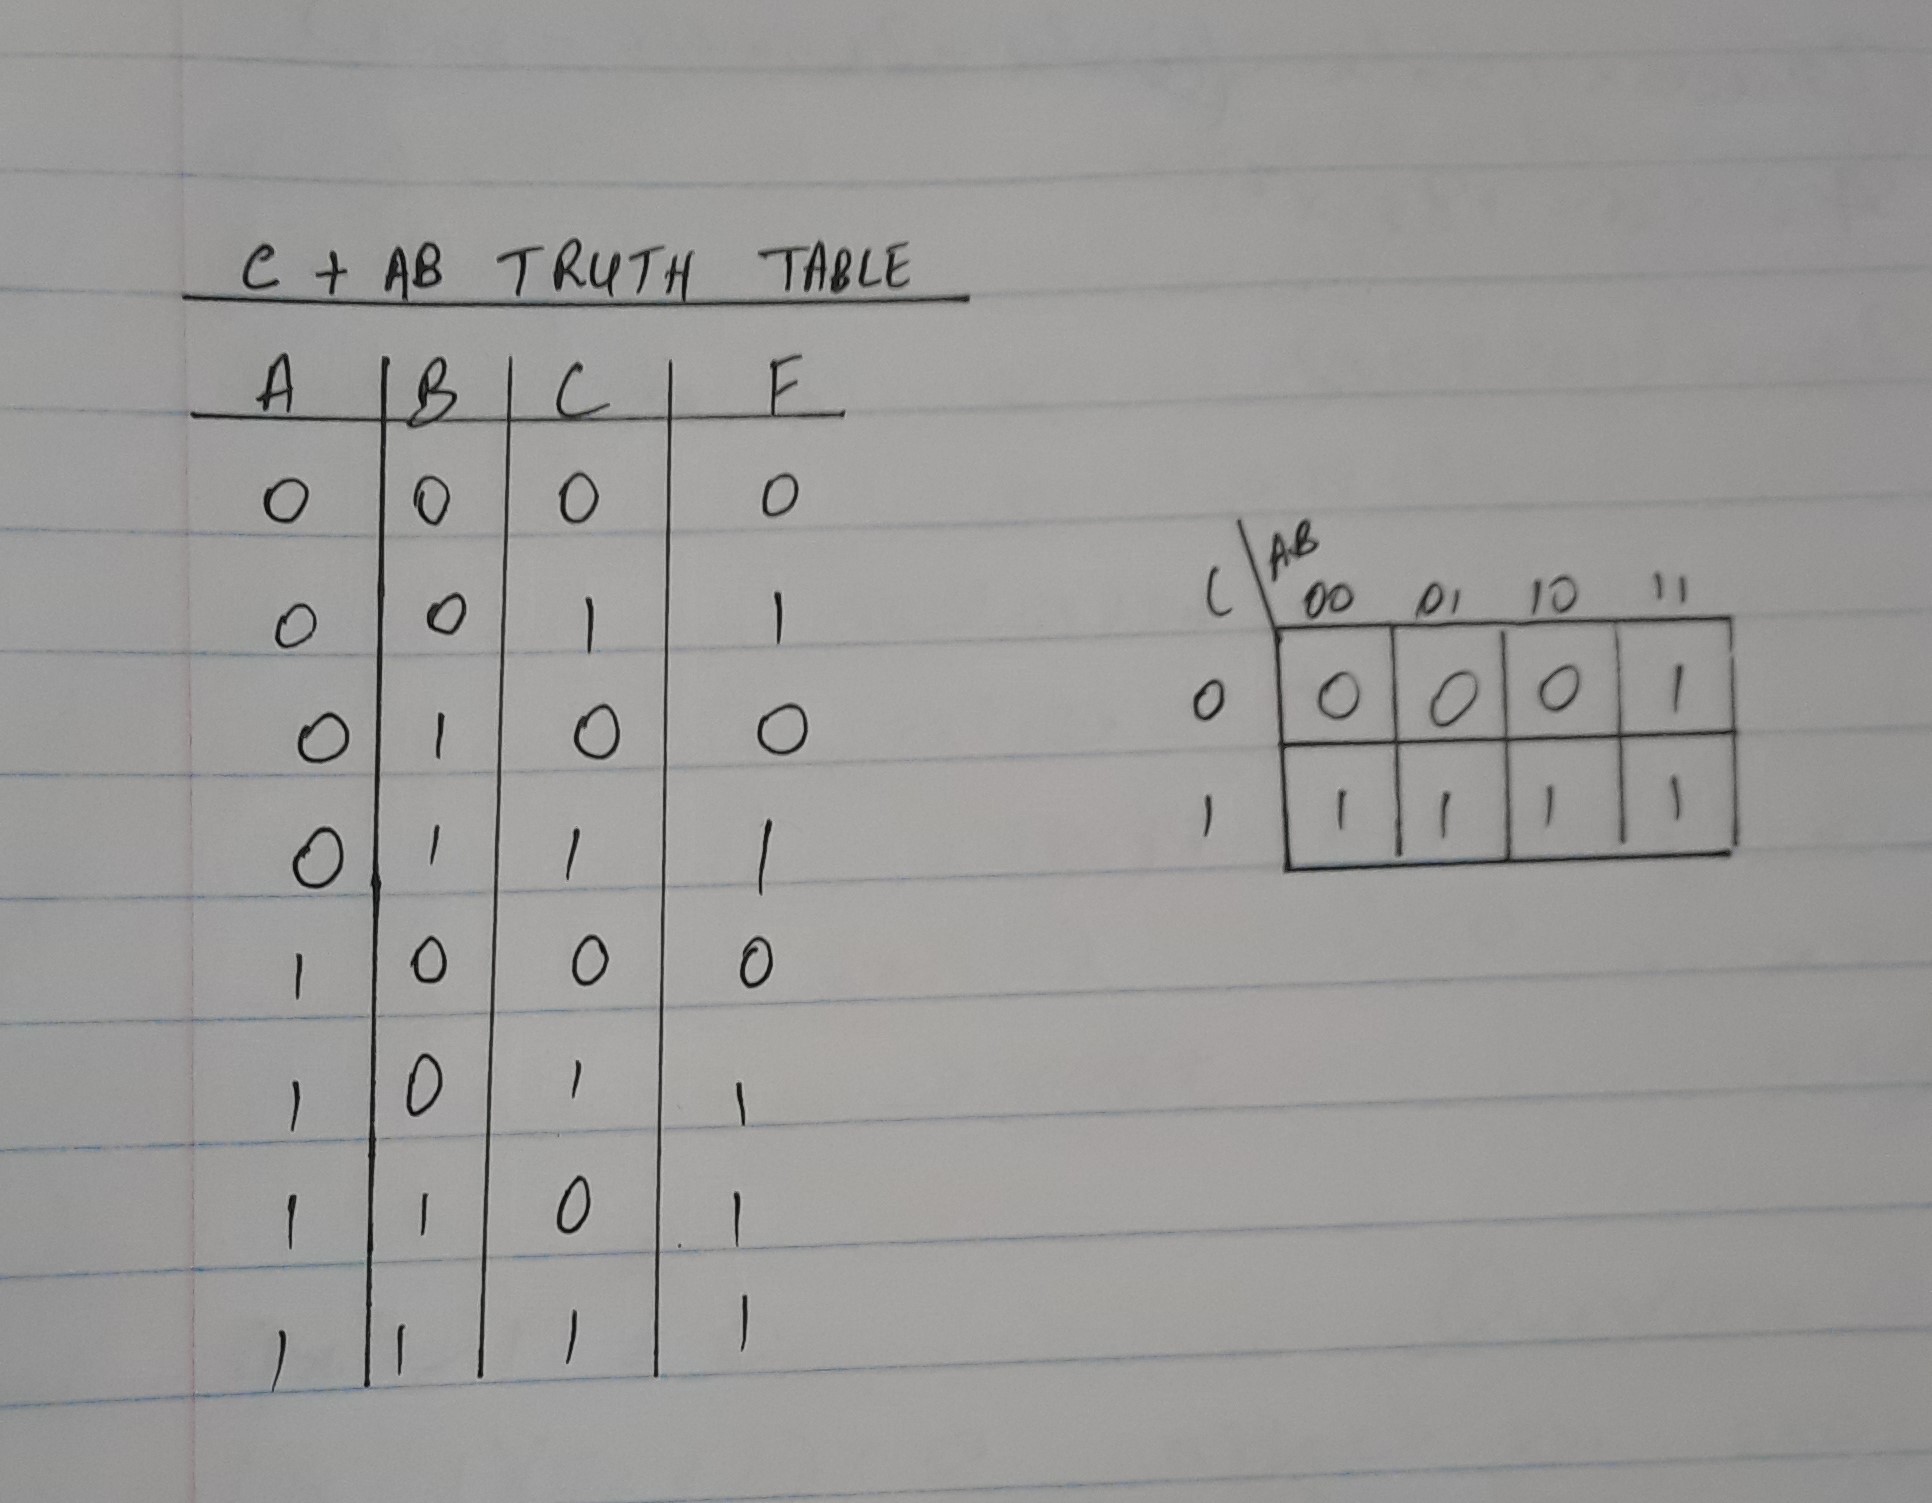 C + AB TRUTH TABLE
A B C F
0 0 0 0
0 0 1 1
0 1 0 0
0 1 1 1
1 0 0 0
1 0 1 1
1 1 0 1
1 1 1 1
C \ AB
00 01 10 11
0 0 0 0 1
1 1 1 1 1